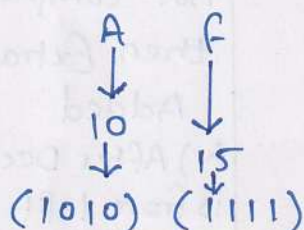 A F
10
15
(1010) (1111)